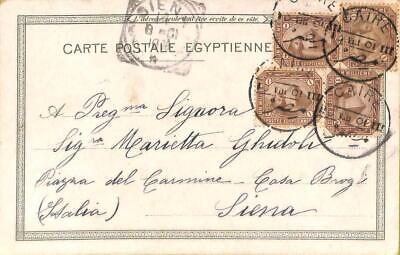 L'adresse seule doit être écrite de ce côté.
CARTE POSTALE EGYPTIENNE
CAIRE
CAIRE
SIENA
A Preg.ma Signora
Sig.ra Marietta Ghidoli
Piazza del Carmine - Casa Brogi
(Italia)
Siena